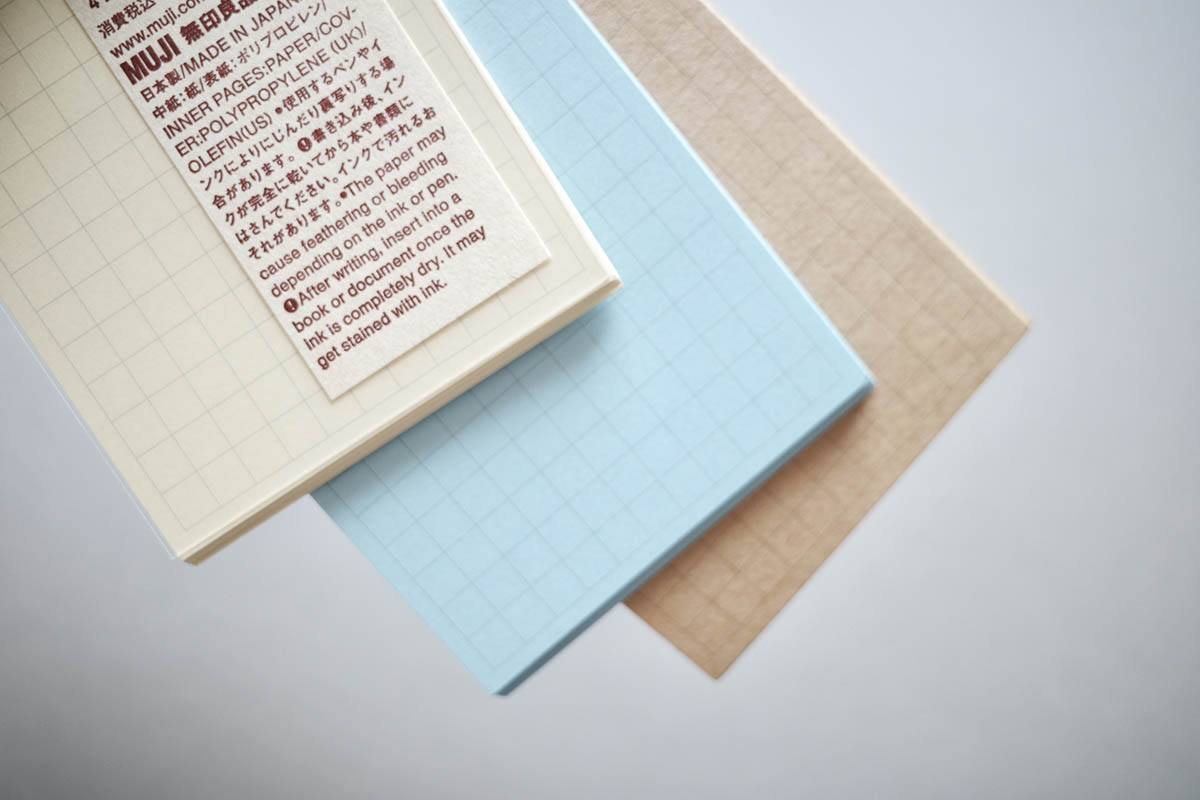 消費税込
www.muji.com
MUJI 無印良品
日本製/MADE IN JAPAN
中紙:紙/表紙:ポリプロピレン/
INNER PAGES:PAPER/COV-
ER:POLYPROPYLENE (UK)/
OLEFIN(US) ●使用するペンやイ
ンクによりにじんだり裏写りする場
合があります。!書き込み後、イン
クが完全に乾いてから本や書類に
はさんでください。インクで汚れるお
それがあります。●The paper may
cause feathering or bleeding
depending on the ink or pen.
!After writing, insert into a
book or document once the
ink is completely dry. It may
get stained with ink.